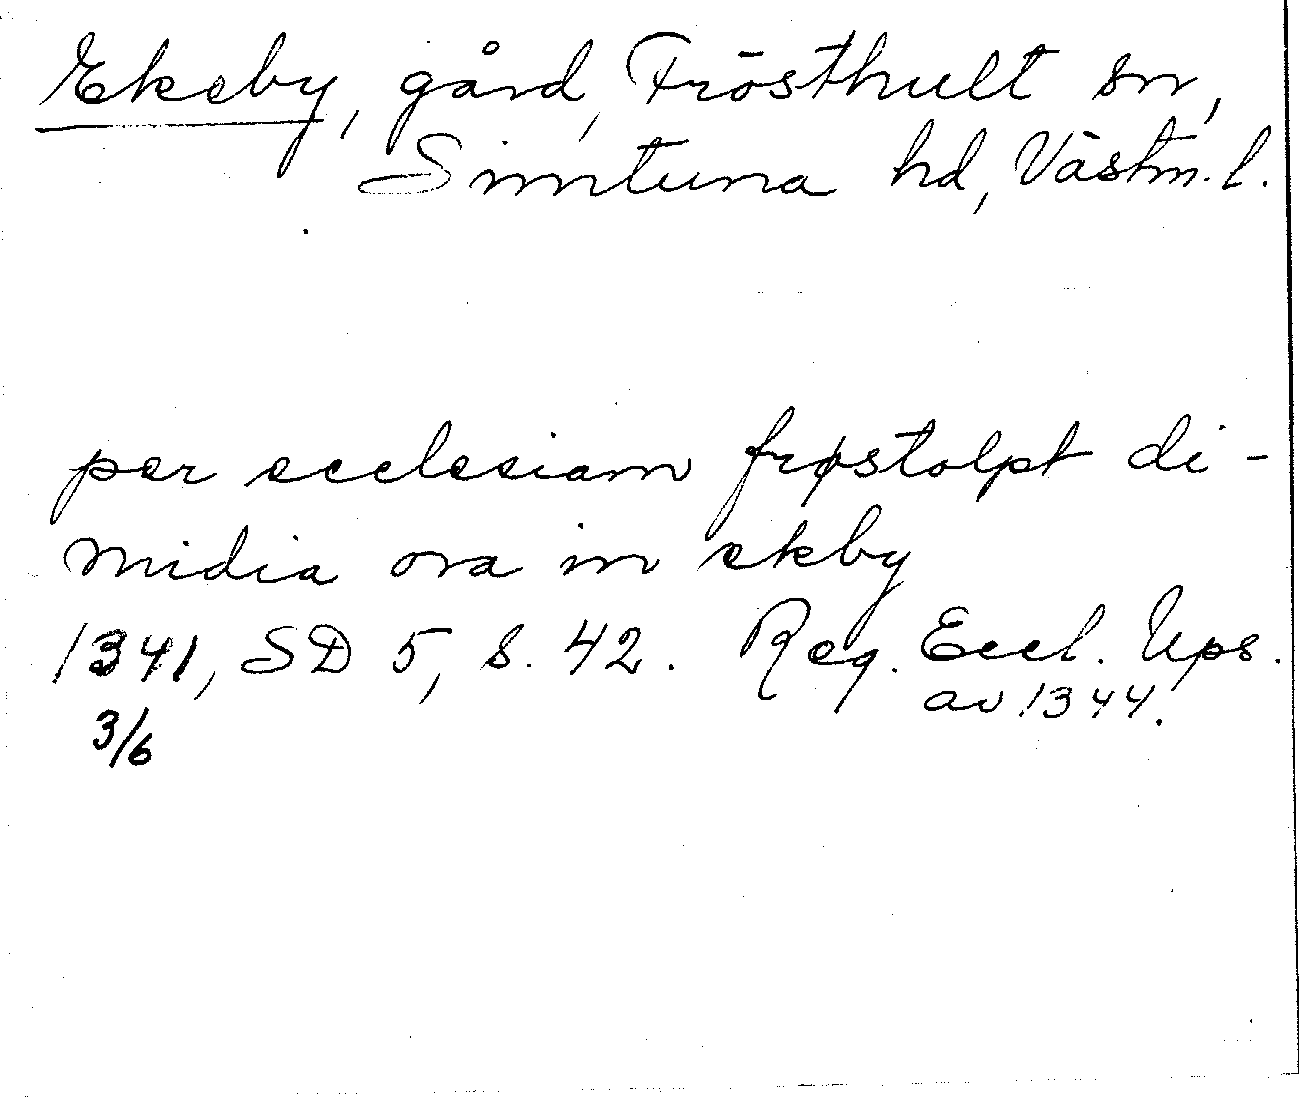 Ekeby, gård, Frösthult sn,
Simtuna hd, Västm. l.
per ecclesiam frøstolpt di-
midia ora in ekby
1341, SD 5, s. 42. Reg. Eccl. Ups.
3/6 av 1344.